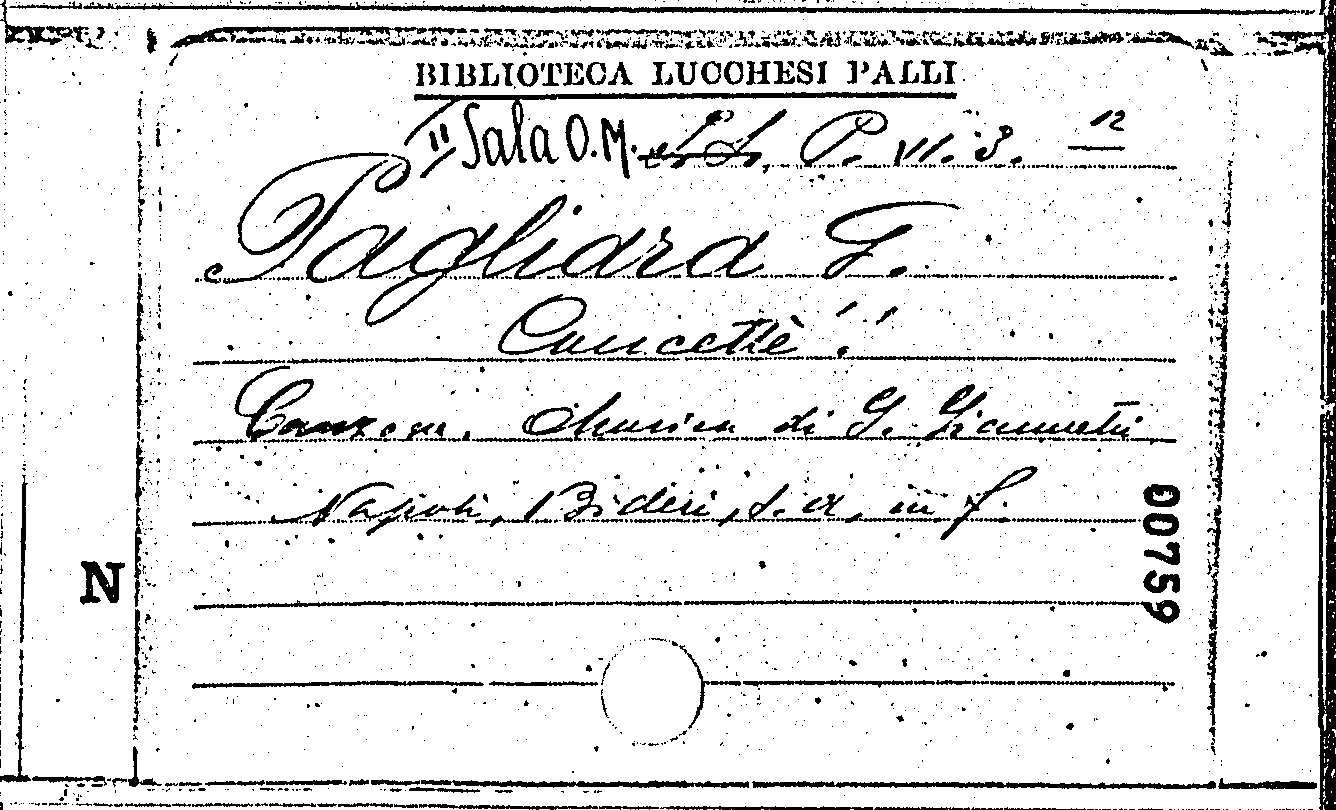 BIBLIOTECA LUCCHESI PALLI
II Sala O.M. L.L. P. VI. 3. 12
Pagliara G.
Cuncettè!!
Canzone. Musica di G. Giannetti
Napoli, Bideri, s. a, in f.
00759
N